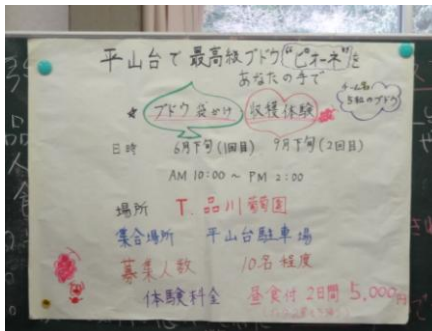 平山台で最高級ブドウ"ピオーネ"を
あなたの手で
ブドウ袋かけ 収穫体験
5粒のブドウ
日時 6月下旬(1回目) 9月下旬(2回目)
AM 10:00 ~ PM 2:00
場所 T.品川葡萄園
集合場所 平山台駐車場
募集人数 10名程度
体験料金 昼食付 2日間 5,000円